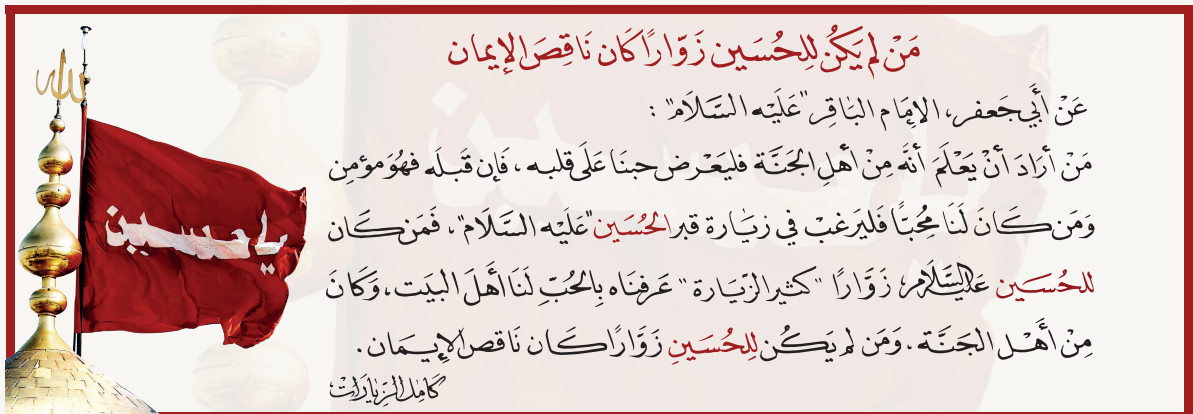 مَنْ لم يَكُنْ لِلحُسَين زَوّاراً كَان نَاقِصَ الإيمان
عَنْ أَبي جَعفر، الإمَام البَاقِر "عَلَيْه السَّلَام" :
مَنْ أرَادَ أنْ يَعْلَمَ أنَّه مِنْ أهلِ الجَنَّة فليَعْرض حبنَا عَلَى قلبه ، فَإن قَبلَه فهُوَ مؤمِن
وَمَن كَانَ لَنَا مُحِبَّاً فَليَرغبْ في زيَارة قبر الحُسَين "عَلَيْه السَّلَام"، فَمَن كَان
للحُسَين عَلَيْهِ السَّلَام زَوَّاراً "كثير الزّيَارة" عَرفنَاه بِالحُبِّ لَنَا أهَلَ البَيَت، وَكَانَ
مِنْ أَهْل الجَنَّة . وَمَن لم يَكُن لِلحُسَينِ زَوَّاراً كَان نَاقصَ الإيمَان .
كَامِل الزِّيَارَات
الله
يا حسين